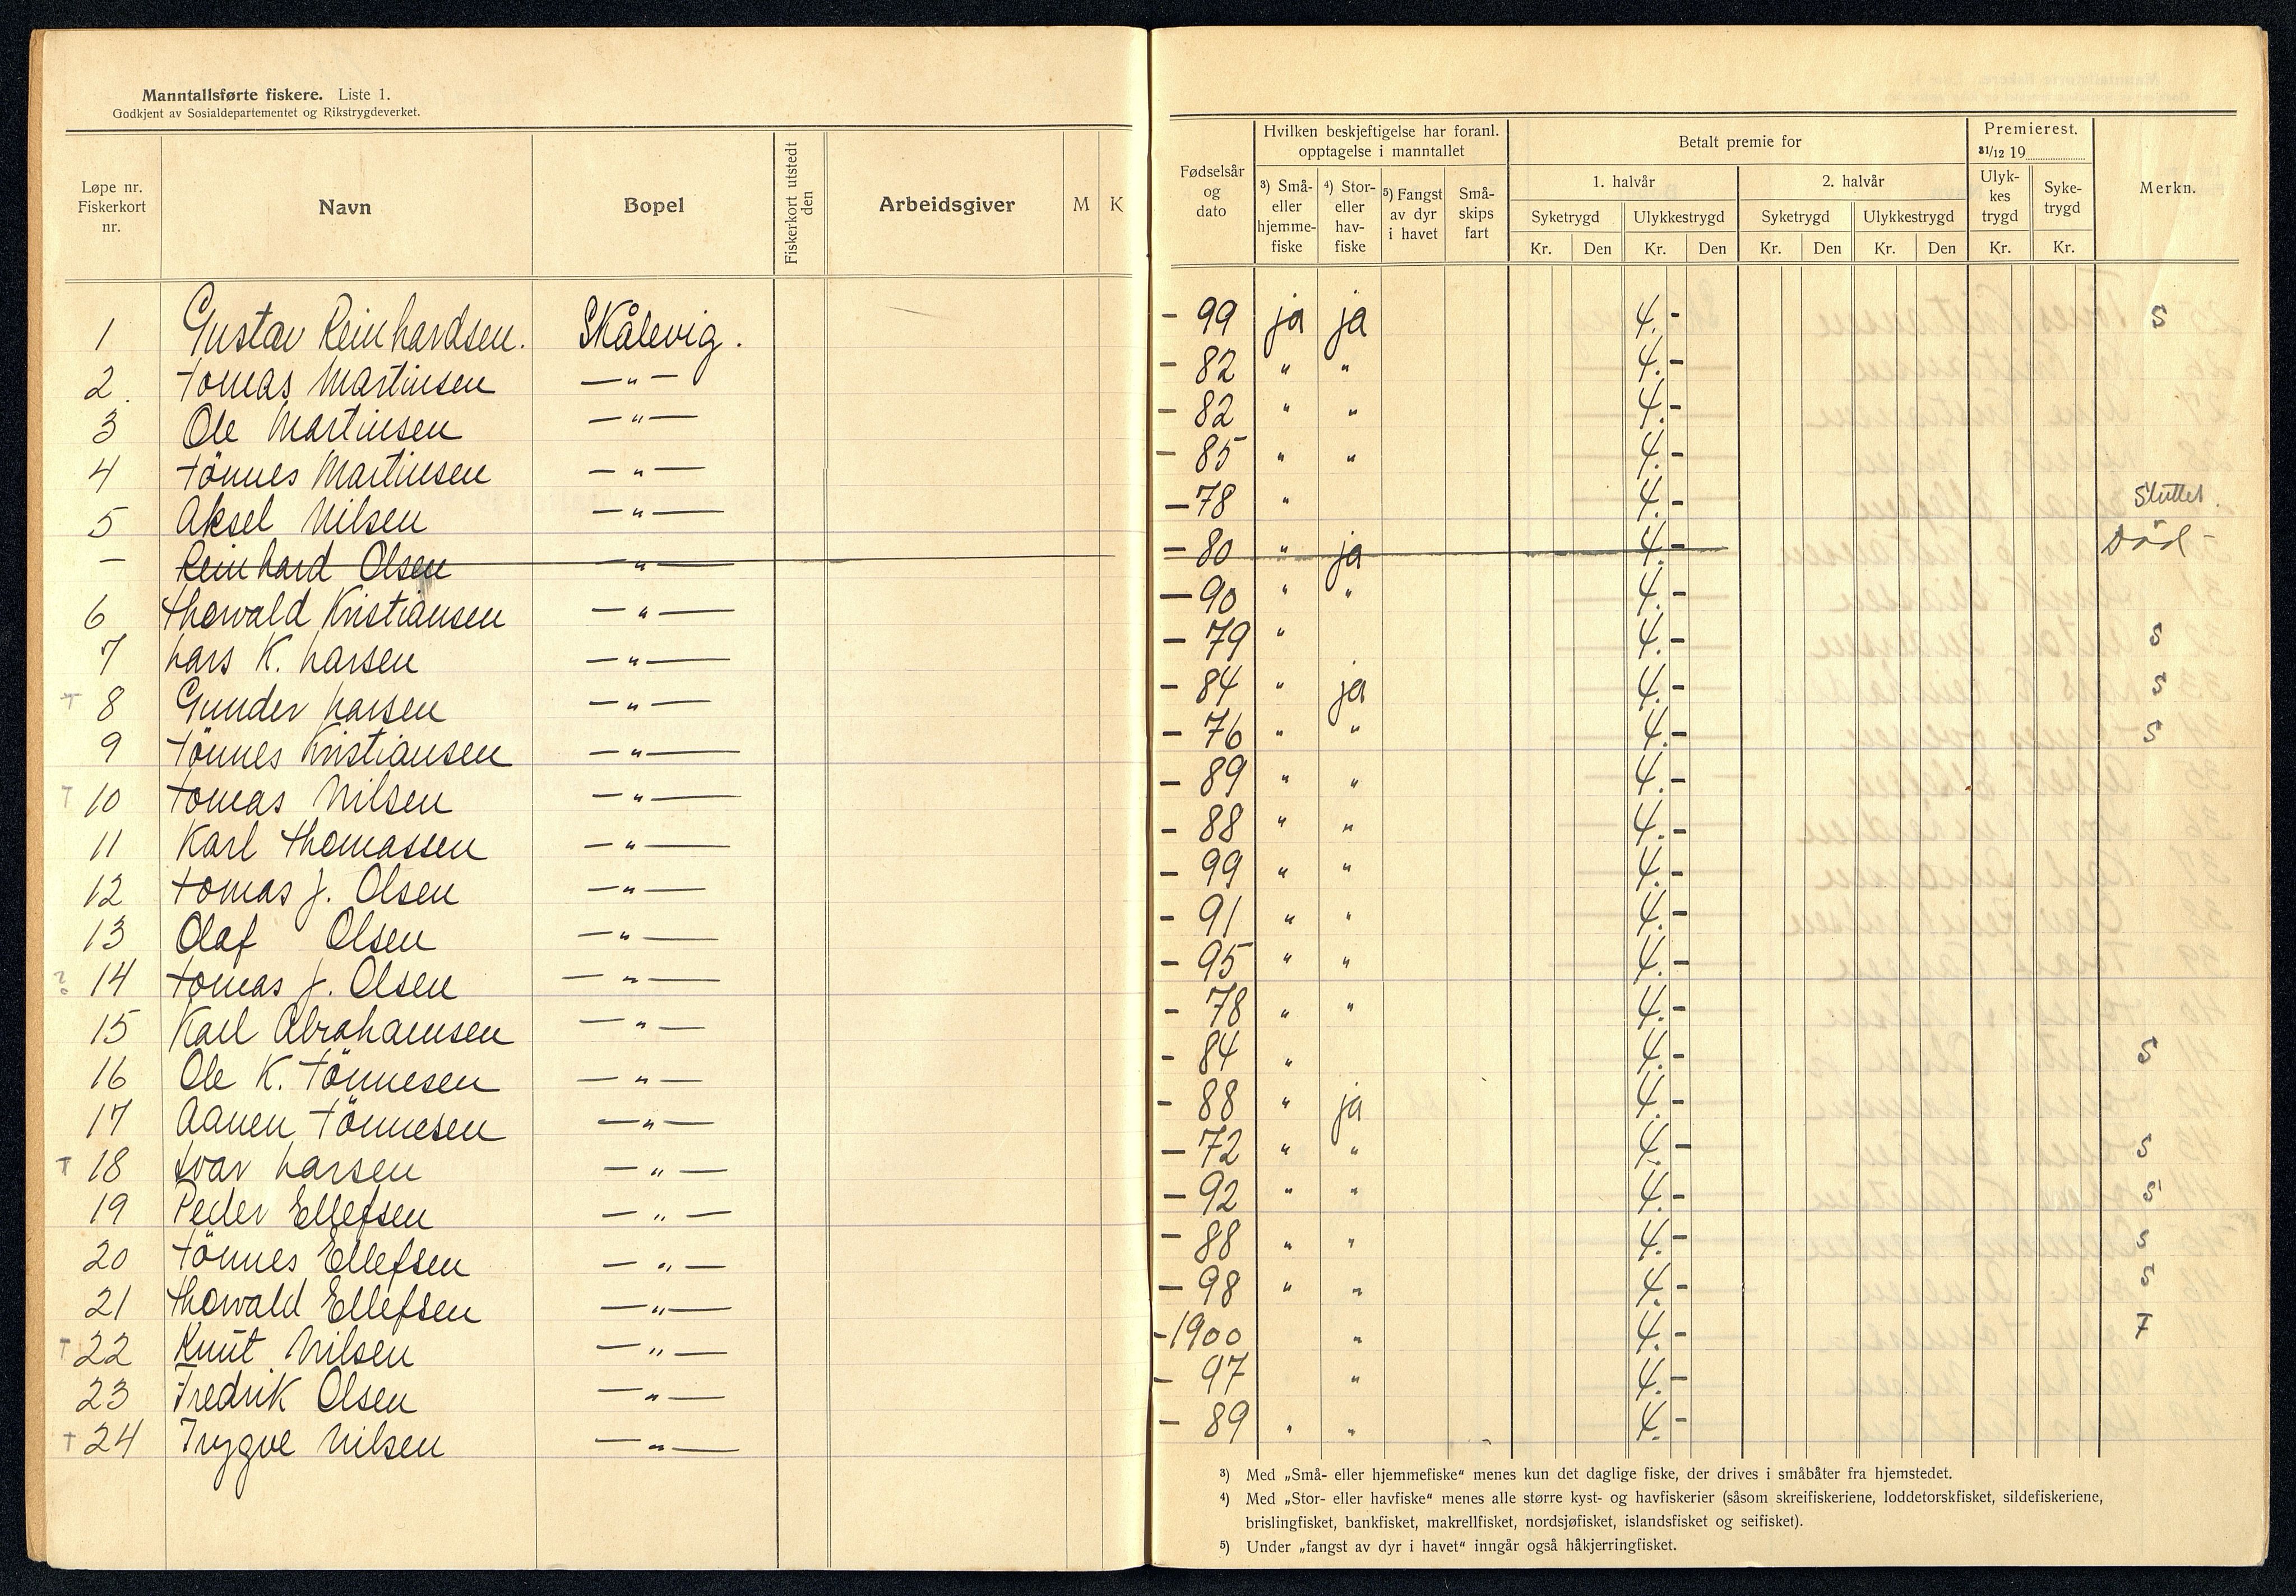 Manntallsførte fiskere. Liste 1.
Godkjent av Sosialdepartementet og Rikstrygdeverket.
Løpe nr. Fiskerkort nr. Navn Bopel Fiskerkort utstedt den Arbeidsgiver M K
Fødselsår og dato
Hvilken beskjeftigelse har foranl. opptagelse i manntallet
³) Små- eller hjemme- fiske ⁴) Stor- eller hav- fiske ⁵) Fangst av dyr i havet Små- skips fart
Betalt premie for
1. halvår 2. halvår
Syketrygd Ulykkestrygd Syketrygd Ulykkestrygd
Kr. Den Kr. Den Kr. Den Kr. Den
Premierest. 31/12 19
Ulyk- kes trygd Syke- trygd
Kr. Kr.
Merkn.
1 Gustav Reinhardsen. Skålevig. - 99 ja ja 4.- S
2. Tomas Martinsen —"— - 82 " " 4.-
3 Ole Martinsen —"— - 82 " " 4.-
4 Tönnes Martinsen —"— - 85 " " 4.-
5 Aksel Nilsen —"— - 78 " 4.- Sluttet.
— Reinhard Olsen —"— - 80 " ja 4.- Död -
6 Thorvald Kristiansen —"— - 90 " " 4.-
7 Lars K. Larsen —"— - 79 " 4.- S
† 8 Gunder Larsen —"— - 84 " ja 4.- S
9 Tönnes Kristiansen —"— - 76 " " 4.- S
† 10 Tomas Nilsen —"— - 89 " " 4.-
11 Karl Thomassen —"— - 88 " " 4.-
12 Tomas J. Olsen —"— - 99 " " 4.-
13 Olaf Olsen —"— - 91 " " 4.-
? 14 Tomas J. Olsen —"— - 95 " " 4.-
15 Karl Abrahamsen —"— - 78 " " 4.-
16 Ole K. Tönnesen —"— - 84 " 4.- S
17 Aanen Tönnesen —"— - 88 " ja 4.-
† 18 Ivar Larsen —"— - 72 " " 4.- S
19 Peder Ellefsen —"— - 92 " " 4.- S
20 Tönnes Ellefsen —"— - 88 " " 4.- S
21 Thorvald Ellefsen —"— - 98 " " 4.- S
† 22 Knut Nilsen —"— - 1900 " 4.- F
23 Fredrik Olsen —"— - 97 " 4.-
† 24 Trygve Nilsen —"— - 89 " " 4.-
³) Med „Små- eller hjemmefiske" menes kun det daglige fiske, der drives i småbåter fra hjemstedet.
⁴) Med „Stor- eller havfiske" menes alle større kyst- og havfiskerier (såsom skreifiskeriene, loddetorskfisket, sildefiskeriene,
brislingfisket, bankfisket, makrellfisket, nordsjøfisket, islandsfisket og seifisket).
⁵) Under „fangst av dyr i havet" inngår også håkjerringfisket.